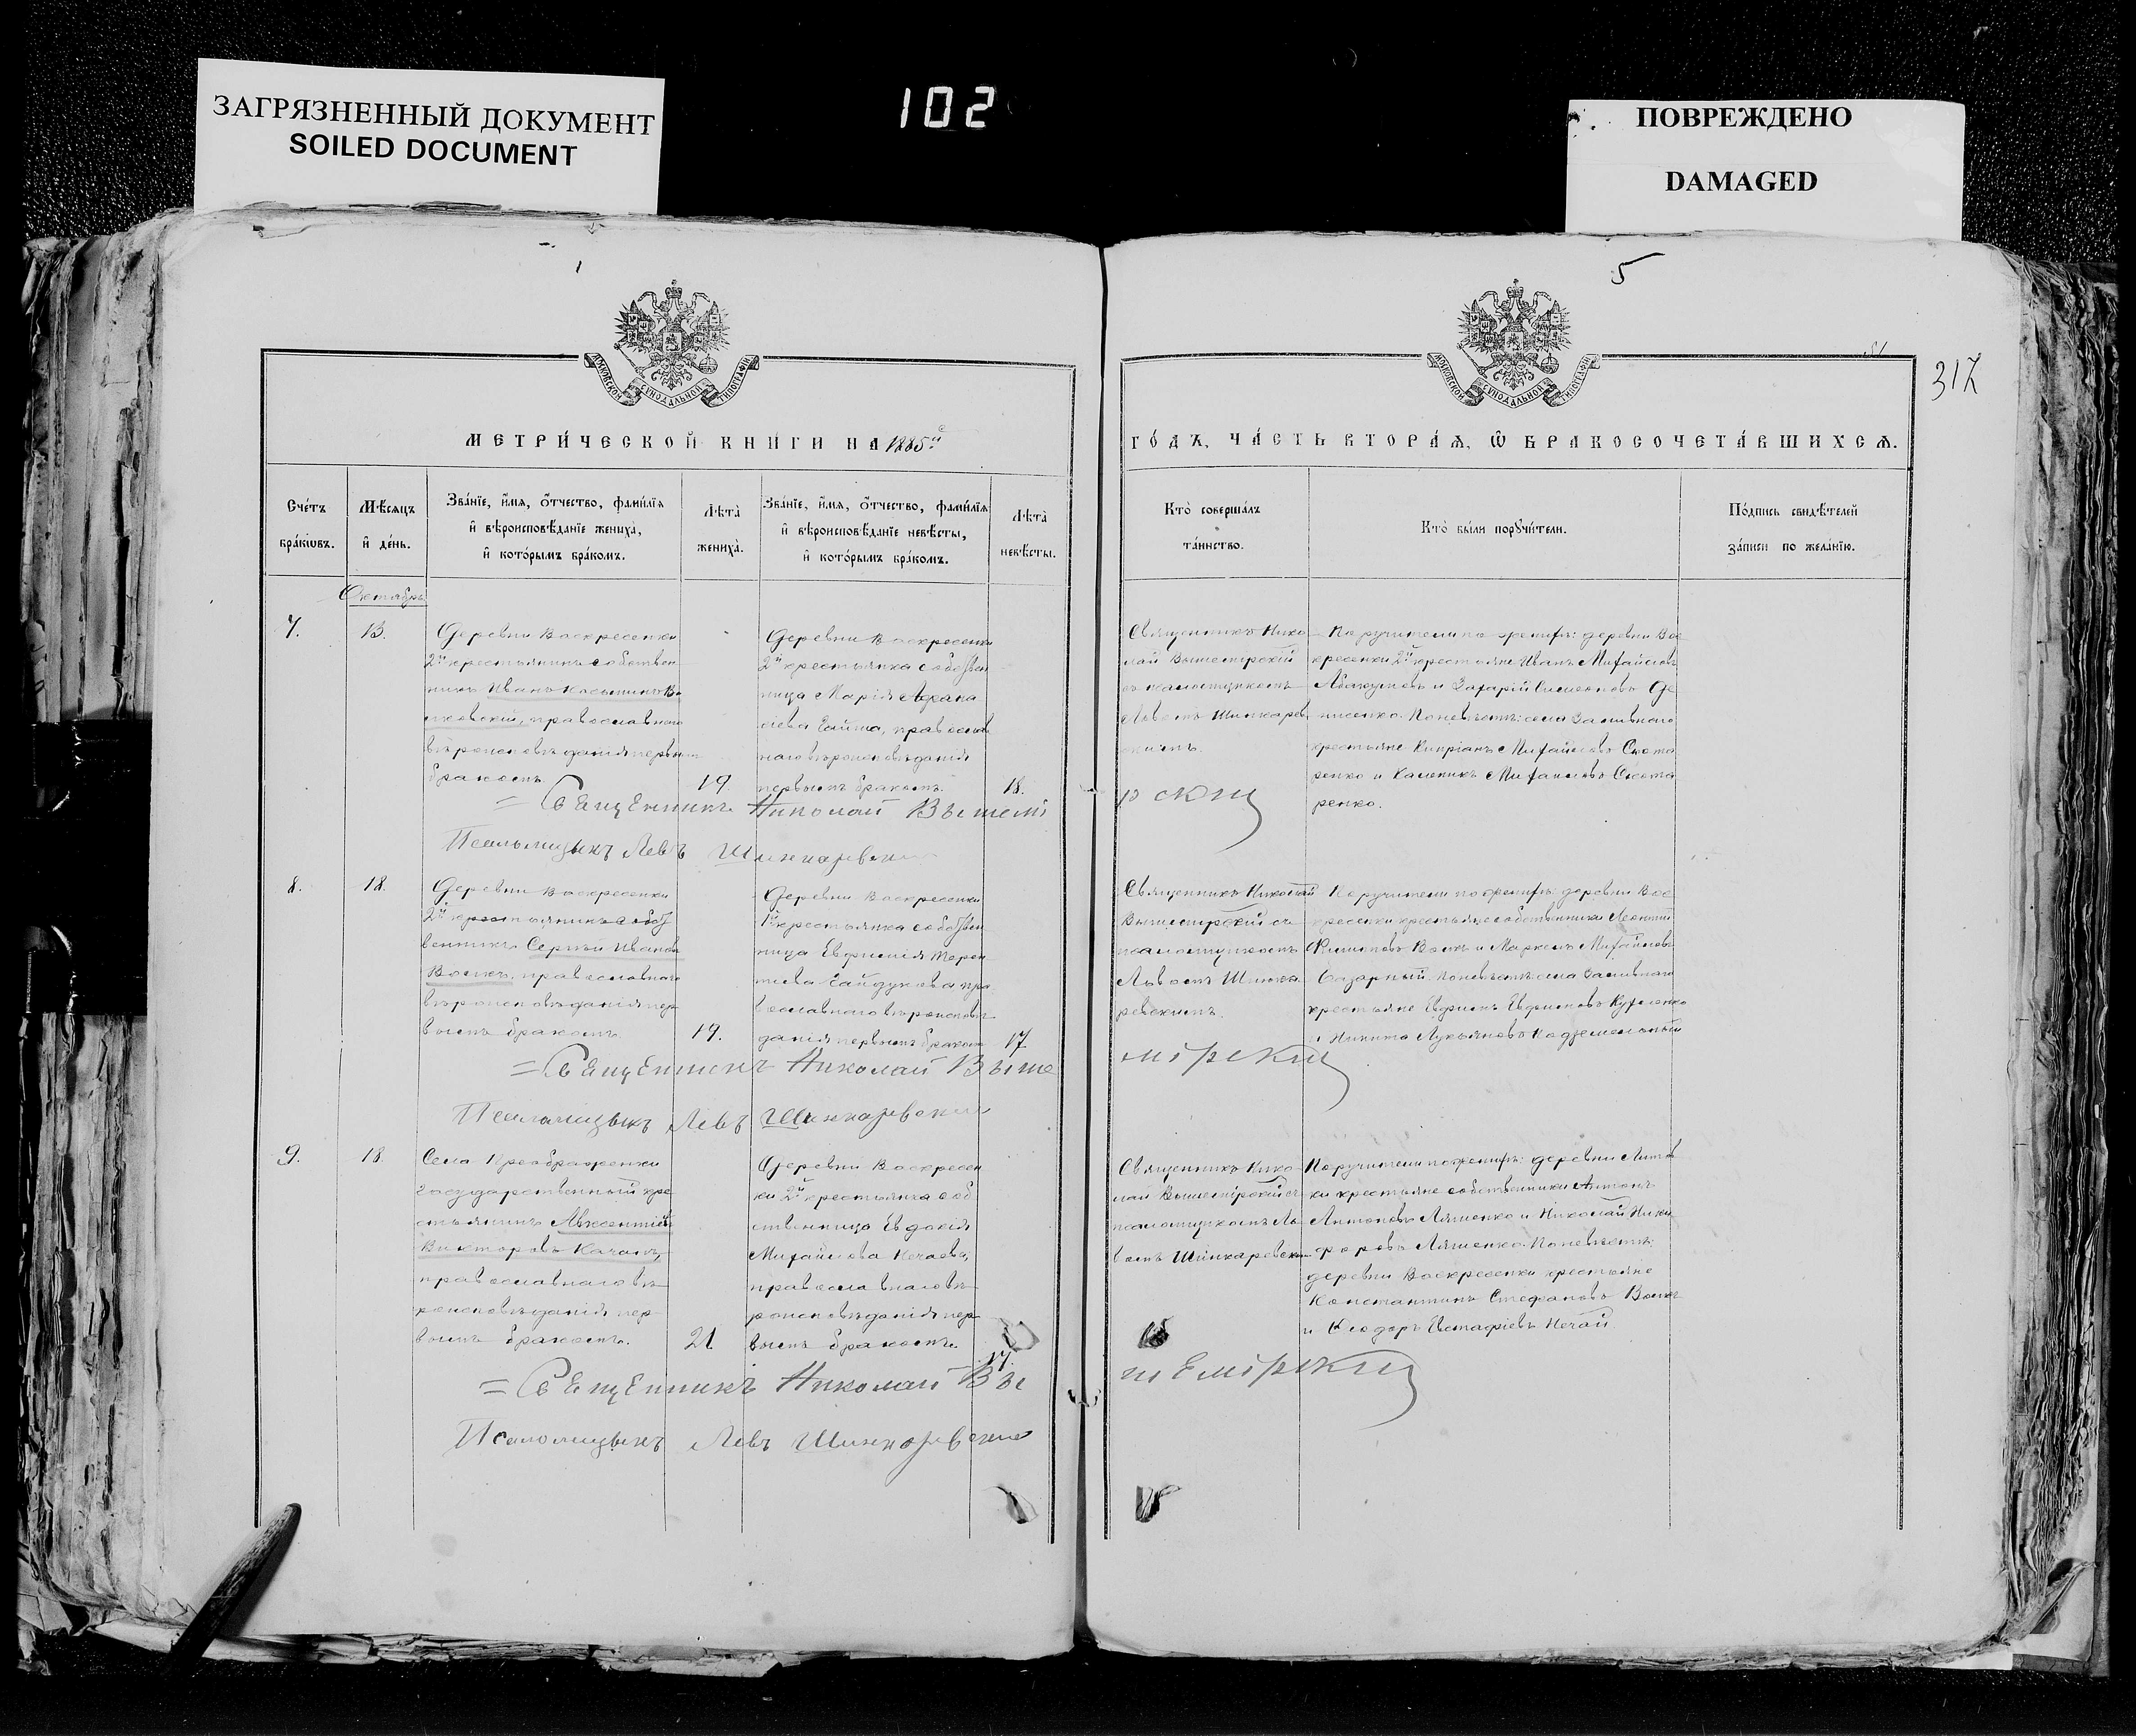 ЗАГРЯЗНЕННЫЙ ДОКУМЕНТ
SOILED DOCUMENT
102
ПОВРЕЖДЕНО
DAMAGED
5
317
МОСКОВСКОЙ СѴНОДАЛЬНОЙ ТИПОГРАФІИ
МОСКОВСКОЙ СѴНОДАЛЬНОЙ ТИПОГРАФІИ
МЕТРИ́ЧЕСКОЙ КНИГИ НА 1885й
ГО́ДЪ, ЧА́СТЬ ВТОРА́Ѧ, Ѽ БРАКОСОЧЕТА́ВШИХСѦ.
Сче́тъ
бра́кѡвъ.
Мѣ́сѧцъ
и҆ де́нь.
Зва́нїе, и҆́мѧ, ѻ҆́тчество, фами́лїѧ
и҆ вѣроисповѣ́данїе жениха̀,
и҆ кото́рымъ бра́комъ.
Лѣта̀
жениха̀.
Зва́нїе, и҆́мѧ, ѻ҆́тчество, фами́лїѧ
и҆ вѣроисповѣ́данїе невѣ́сты,
и҆ кото́рымъ бра́комъ.
Лѣта̀
невѣ́сты.
Кто̀ соверша́лъ
та́инство.
Кто̀ бы́ли порꙋчи́тели.
По́дпись свидѣ́телей
за́писи по жела́нїю.
Октябрь
7.
13.
Деревни Воскресенки
2й крестьянинъ собствен
никъ Иванъ Косьминъ
православнаго
вѣроисповѣданія первымъ
бракомъ
19.
Деревни Воскресенки
2й крестьянка собствен
ница Марія Афана
сіева православ
наго вѣроисповѣданія
первымъ бракомъ.
18.
Священникъ Нико
лай Вышемірскій
съ псаломщикомъ
Львомъ Шинкарев
скимъ.
Поручители по женихѣ: деревни Вос
кресенки 2й крестьяне Иванъ Михайловъ
Абакумовъ и Захарій Симеоновъ Де
нисенко. По невѣстѣ: села Заливнаго
крестьяне Кипріанъ Михайловъ Скота
ренко и Калиникъ Михайловъ Скота
ренко.
Священникъ Николай Вышемі
рскій
Псаломщикъ Левъ Шинкаревскій
8.
18.
Деревни Воскресенки
2й крестьянинъ собст
венникъ Сергѣй Ивановъ
Волкъ, православнаго
вѣроисповѣданія пер
вымъ бракомъ
19.
Деревни Воскресенки
1й крестьянка собствен
ница Евфимія Терен
тіева Гайдукова пра
вославнаго вѣроисповѣ
данія первымъ бракомъ
17
Священникъ Николай
Вышемірскій съ
псаломщикомъ
Львомъ Шинка
ревскимъ.
Поручители по женихѣ: деревни Вос
кресенки крестьяне собственники Леонтій
Филиповъ Волкъ и Маркелъ Михайловъ
По невѣстѣ: села Заливнаго
крестьяне Ефимъ Евфимовъ
и Никита Лукьяновъ
Священникъ Николай Выше
мірскій
Псаломщикъ Левъ Шинкаревскій
9.
18.
Села Преображенки
Государственный кре
стьянинъ Авксентій
Викторовъ Качанъ,
православнаго вѣ
роисповѣданія пер
вымъ бракомъ.
21
Деревни Воскресен
ки 2й крестьянка соб
ственница Евдокія
Михайлова Нечаева,
православнаго вѣ
роисповѣданія пер
вымъ бракомъ.
17.
Священникъ Нико
лай Вышемірскій съ
псаломщикомъ Ль
вомъ Шинкаревским
Поручители по женихѣ: деревни Литов
ки крестьяне собственники Антонъ
Антоновъ Ляшенко и Николай Ники
форовъ Ляшенко. По невѣстѣ:
деревни Воскресенки крестьяне
Константинъ Стефановъ Волкъ
и Ѳеодоръ Евстафіевъ Нечай.
Священникъ Николай Вы
шемірскій
Псаломщикъ Левъ Шинкаревскій